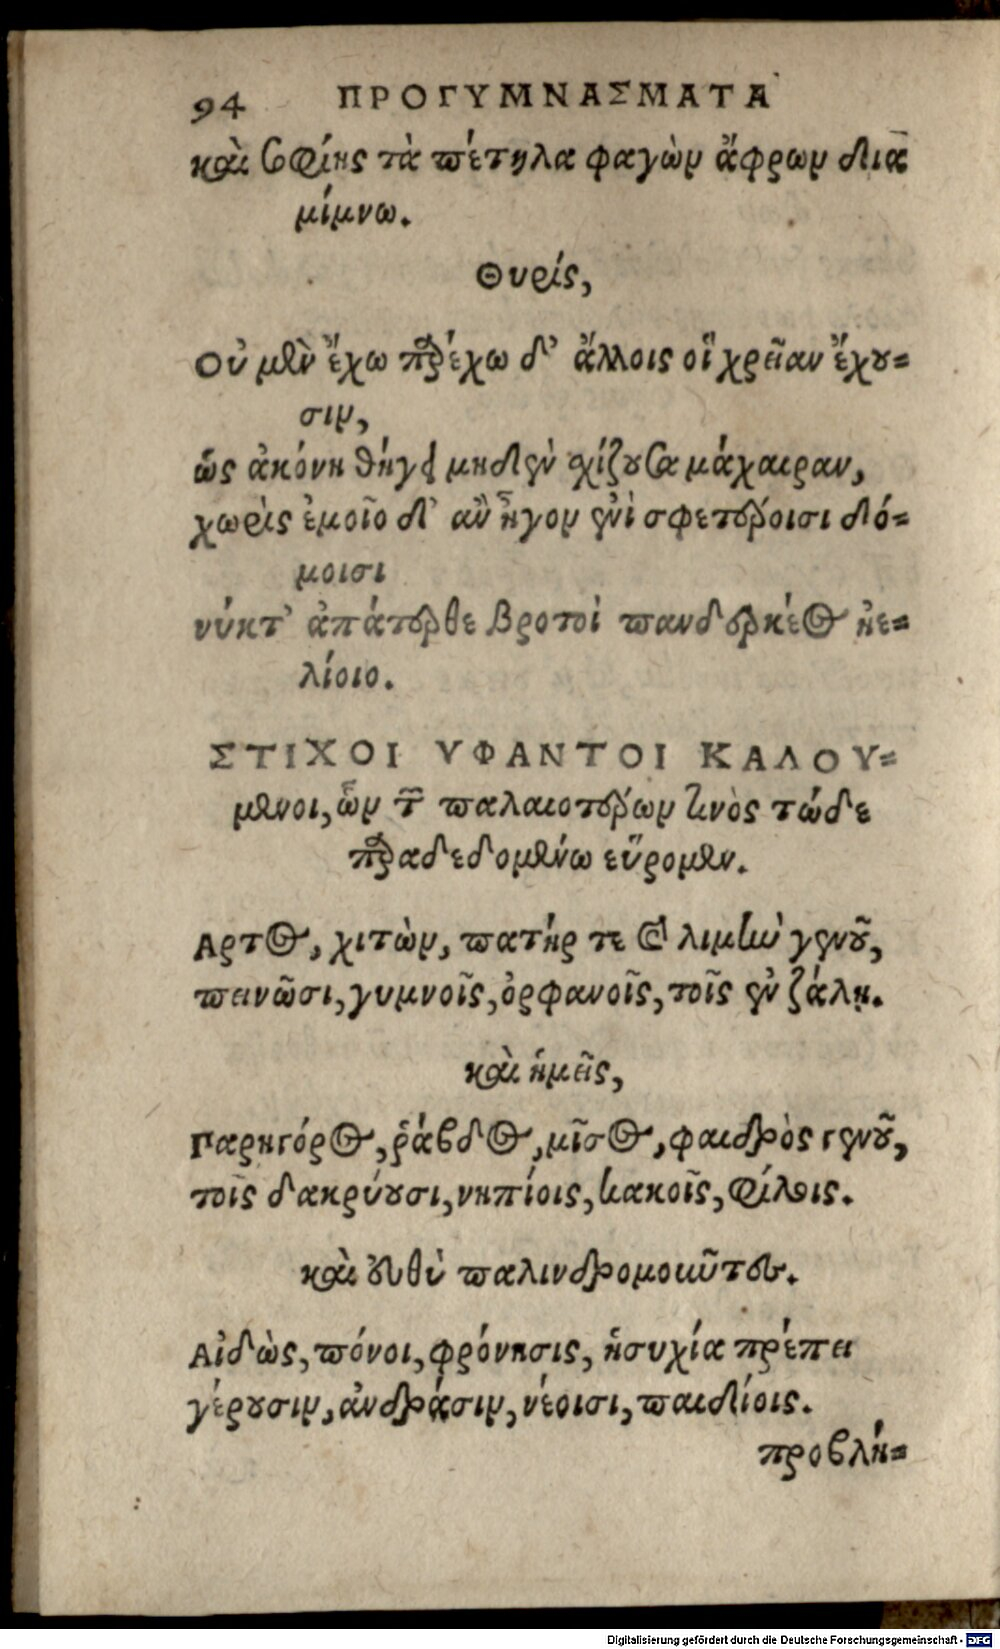 94 ΠΡΟΓΥΜΝΑΣΜΑΤΑ
καὶ σοφίης τὰ πέτηλα φαγὼν ἄφρων δια
μίμνω.
Θυρίς,
Οὐ μὲν ἔχω παρέχω δ' ἄλλοις οἳ χρείαν ἔχου-
σιν,
ὡς ἀκόνη θήγει μηδὲν σχίζουσα μάχαιραν,
χωρὶς ἐμοῖο δ' ἂν ἦγον ἐνὶ σφετέροισι δό-
μοισι
νύκτ' ἀπάτερθε βροτοὶ πανδερκέος ἠε-
λίοιο.
ΣΤΙΧΟΙ ΥΦΑΝΤΟΙ ΚΑΛΟΥ-
μενοι, ὧν τῶν παλαιοτέρων τινὸς τώδε
παραδεδομένω εὕρομεν.
Αρτος, χιτὼν, πατήρ τε καὶ λιμὴν γενοῦ,
πεινῶσι, γυμνοῖς, ὀρφανοῖς, τοῖς ἐν ζάλῃ.
καὶ ἡμεῖς,
Παρηγόρος, ῥάβδος, μῖσος, φαιδρὸς γενοῦ,
τοῖς δακρύουσι, νηπίοις, κακοῖς, φίλοις.
καὶ εὐθὺ παλινδρομοῦντες.
Αἰδὼς, πόνοι, φρόνησις, ἡσυχία πρέπει
γέρουσιν, ἀνδράσιν, νέοισι, παιδίοις.
προβλή-
Digitalisierung gefördert durch die Deutsche Forschungsgemeinschaft - DFG